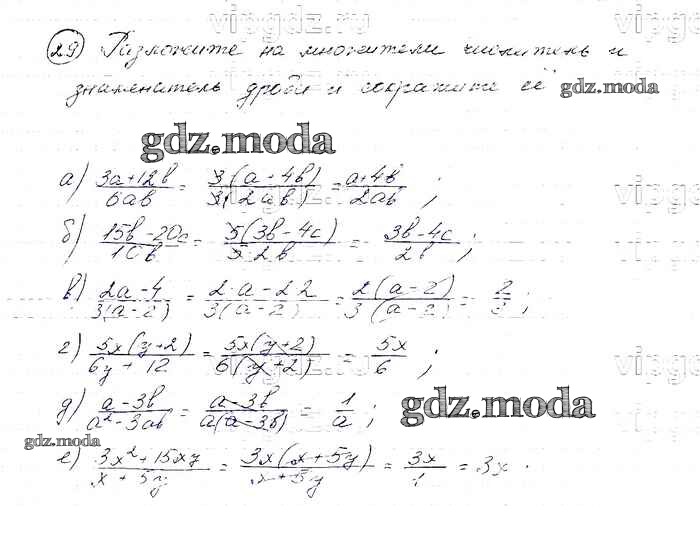 vipgdz.ru
29) Разложите на множители числитель и
знаменатель дроби и сократите её
gdz.moda
gdz.moda
а) (3a+12b)/(6ab) = 3(a-4b)/(3(2ab)) = (a+4b)/(2ab) ;
б) (15b-20c)/(10b) = 5(3b-4c)/(5·2b) = (3b-4c)/(2b) ;
в) (2a-4)/(3(a-2)) = (2·a-2·2)/(3(a-2)) = 2(a-2)/(3(a-2)) = 2/3 ;
г) 5x(y+2)/(6y+12) = 5x(y+2)/(6(y+2)) = 5x/6 ;
д) (a-3b)/(a²-3ab) = (a-3b)/(a(a-3b)) = 1/a ;
gdz.moda
gdz.moda
е) (3x²+15xy)/(x+5y) = 3x(x+5y)/(x+5y) = 3x/1 = 3x .